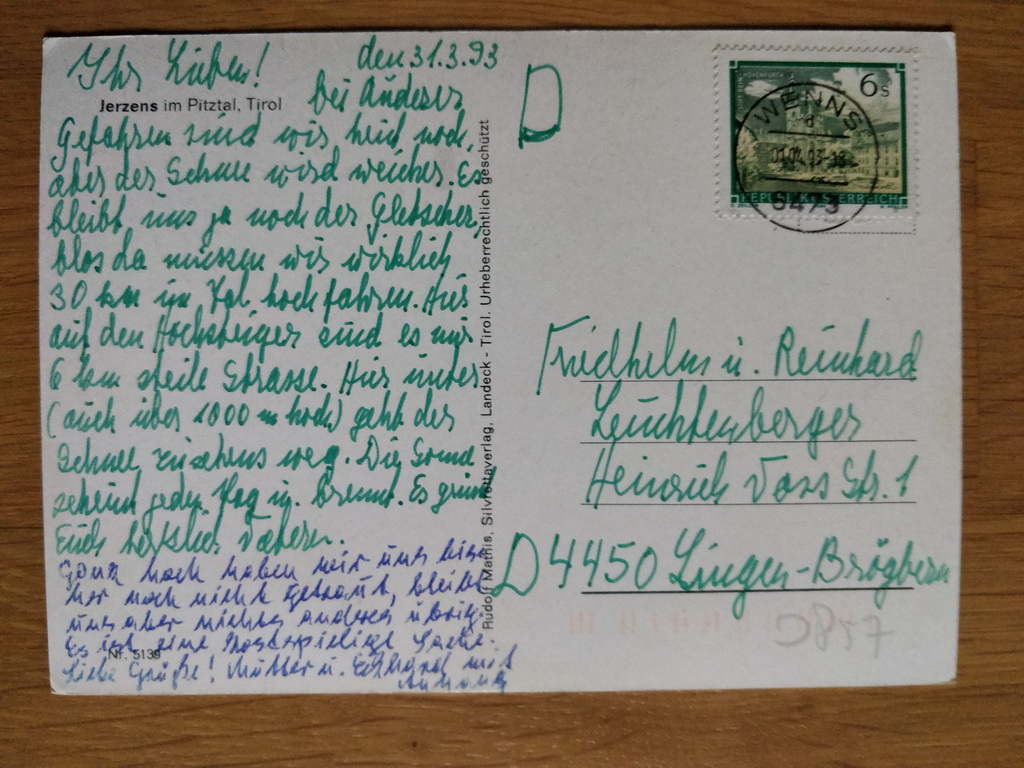 den 31.3.93
Ihr Lieben!
Jerzens im Pitztal, Tirol
bei Anderer
Gefahren sind wir heid noch,
aber der Schnee wird weicher. Es
bleibt uns ja noch der Gletscher,
blos da müssen wir wirklich
30 km im Tal hoch fahren. Hir
auf den Hochzeiger sind es nur
6 km steile Strasse. Hir unter
(auch über 1000 m hoch) geht der
Schnee zusehens weg. Die Sonne
scheint jeden Tag u. brennt. Es grüsst
Euch herzlich Vatern.
Ganz hoch haben wir uns bis-
her noch nicht getraut, bleibt
uns aber nichts anderes übrig.
Es ist eine kostspielige Sache.
Liebe Grüße! Mutter u. mit
Nr. 5139
Rudolf Mathis, Silvrettaverlag, Landeck - Tirol. Urheberrechtlich geschützt
D
6s
REPUBLIK ÖSTERREICH
WENNS
d
01.04.93-18
6473
Friedhelm u. Reinhard
Leuchtenberger
Heinrich Voss Str. 1
D 4450 Lingen-Brögbern